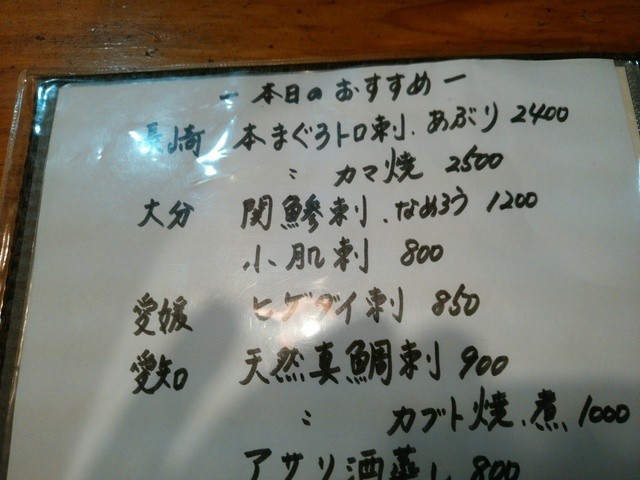 ー本日のおすすめー
長崎 本まぐろトロ刺、あぶり 2400
〃 カマ焼 2500
大分 関鯵刺、なめろう 1200
小肌刺 800
愛媛 ヒゲダイ刺 850
愛知 天然真鯛刺 900
〃 カブト焼、煮 1000
アサリ酒蒸し 800